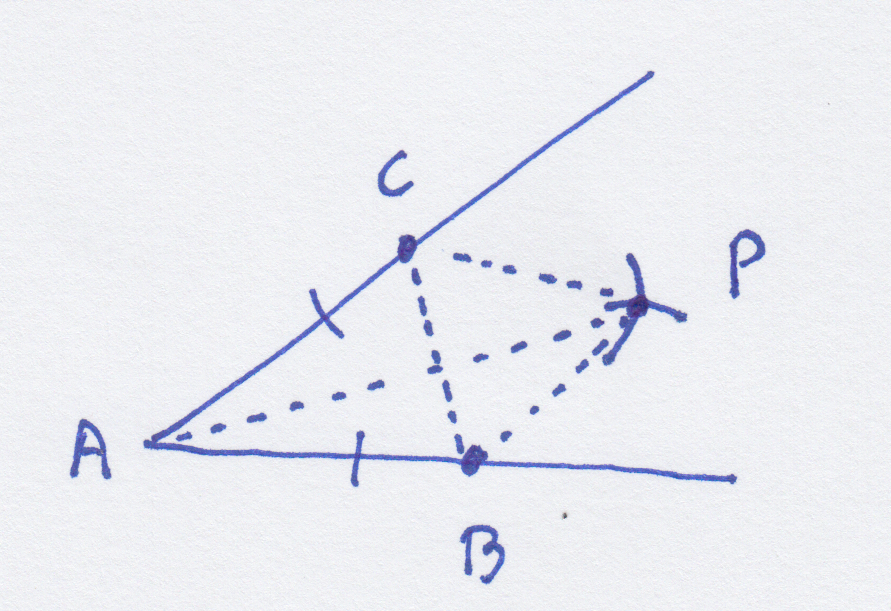 C
P
A
B